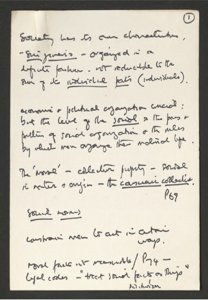 1
Society has its own characteristics,
"Sui generis" - organized in a
definite pattern - not reducible to the
sum of the individual parts (individuals).
economic & political organization crucial:
but the level of the social is the
pattern of social organization & the rules
by which men arrange their material life.
The "moral" - collective - social
in nature & origin - the collective
P69
Social norms
constrain men to act in certain
ways.
moral facts not reasonable / P74 -
legal codes - "treat social facts as things"